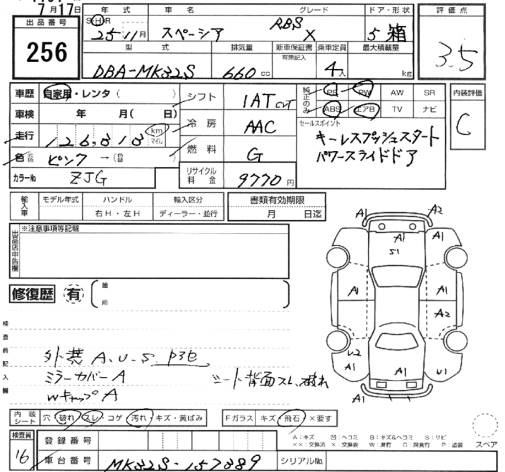 7月17日
出品番号 256
年式 車名 グレード ドア・形状 評価点
25・11月 スペーシア RBS X 5 箱 3.5
型式 排気量 新車保証書 乗車定員 最大積載量
有無記入
DBA-MK32S 660 cc 4人 kg
車歴 自家用・レンタ( ) シフト 1AT CVT 純正のみ PS PW AW SR 内装評価
ABS エアB TV ナビ C
車検 年 月( 日) 冷房 AAC セールスポイント
走行 126,818 km マイル
キーレスプッシュスタート
パワースライドドア
色 ピンク → 燃料 G
カラーNo ZJG リサイクル料金 9770円
輸入車 モデル年式 ハンドル 輸入区分 書類有効期限
右H・左H ディーラー・並行 月 日迄
※注意事項等記載
修復歴 有
A1 A2
A1 A1
S1
A1 A1
A2
U2 A1
A1
外装 A、U、S
ミラーカバーA
WキャップA
シート背面スレ、破れ
内装シート 穴 破れ スレ コゲ 汚れ キズ・黄ばみ Fガラス キズ 飛石 ×要す
検査員 16
登録番号
車台番号 MK32S-157889 シリアルNo.
スペア